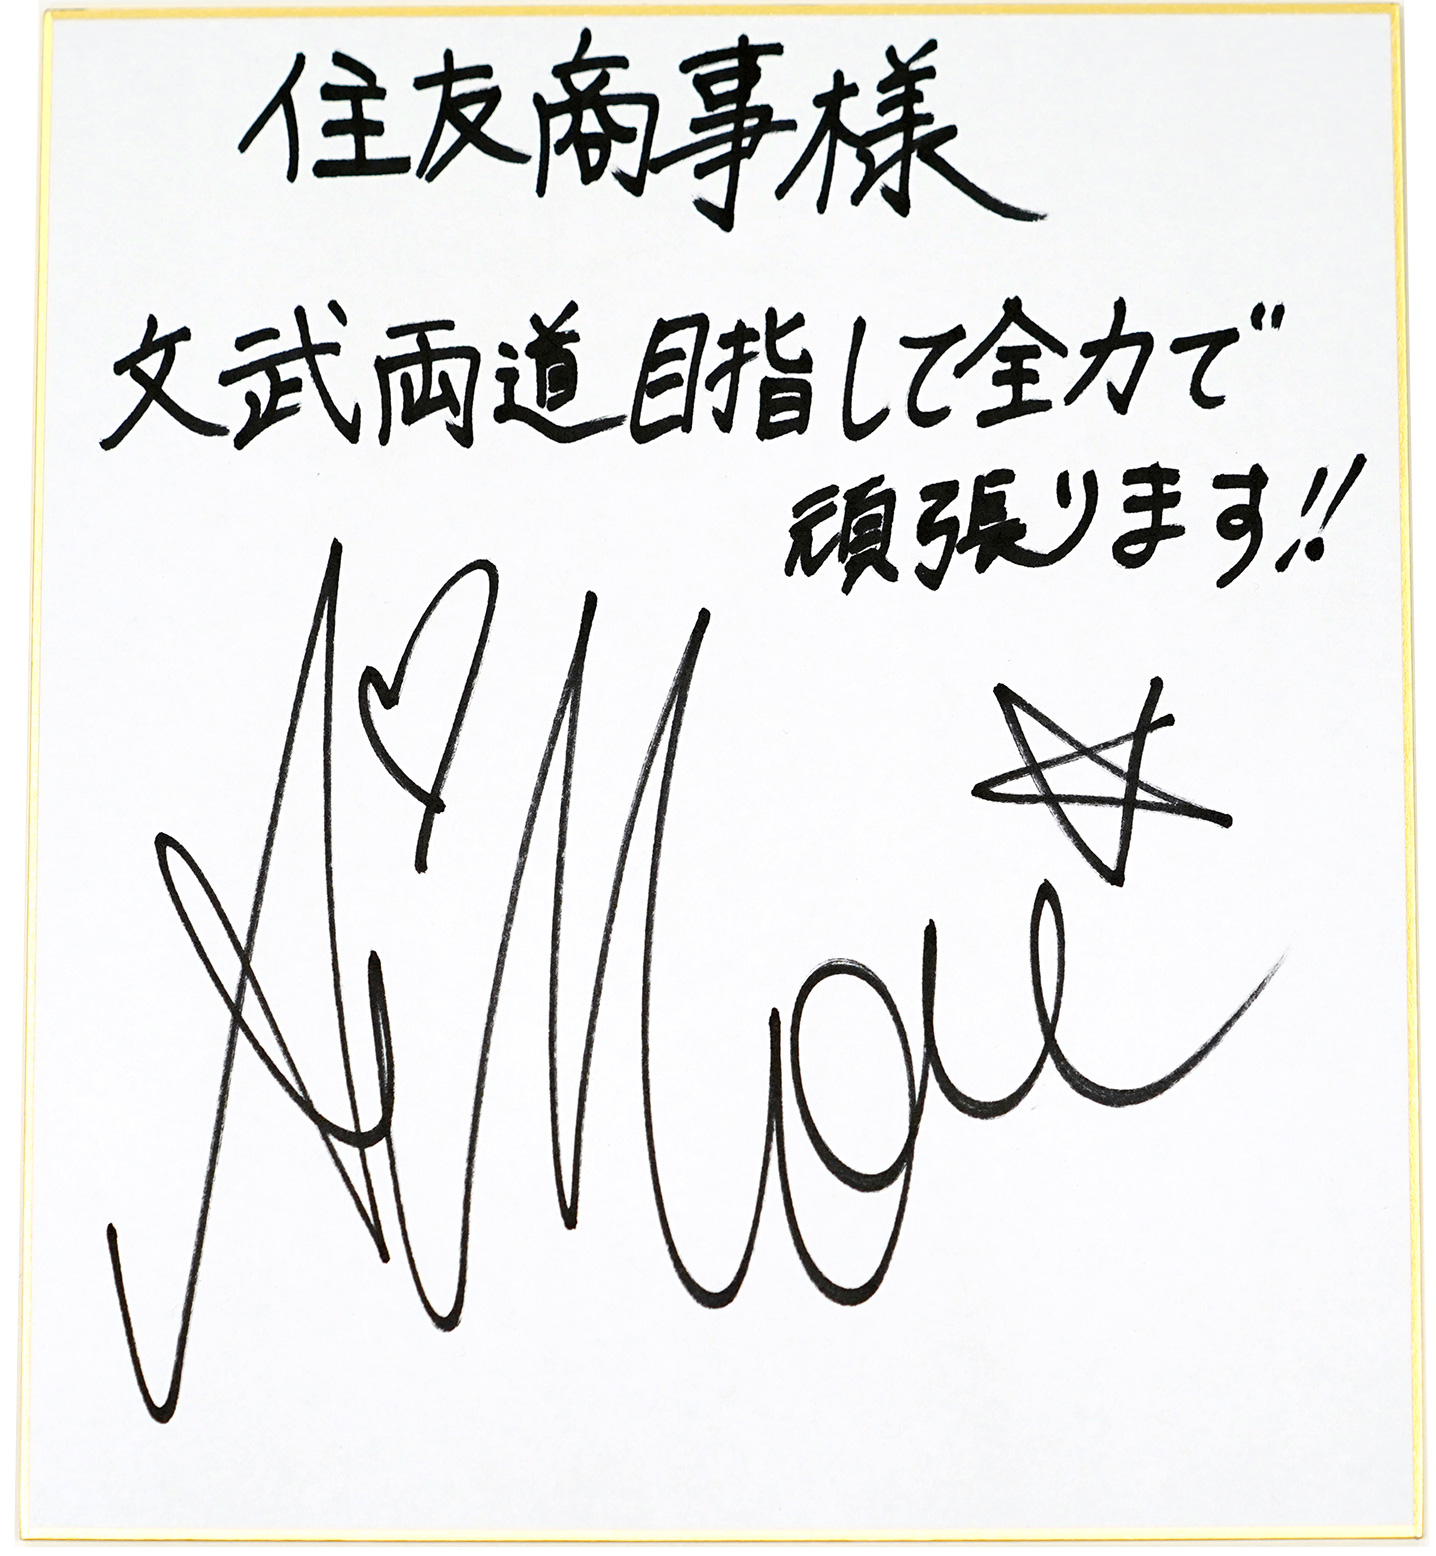 住友商事様
文武両道目指して全力で
頑張ります!!